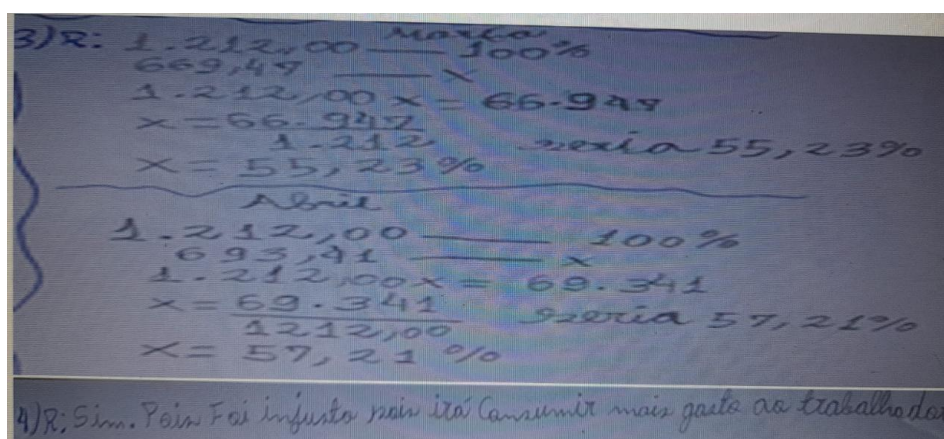 Março
3) R: 1.212,00 — 100%
669,47 — x
1.212,00 x = 66.947
x = 66.947
1.212
seria 55,23%
x = 55,23%
Abril
1.212,00 — 100%
693,41 — x
1.212,00 x = 69.341
x = 69.341
1212,00
seria 57,21%
x = 57,21%
4) R: Sim. Pois Foi injusto pois irá Consumir mais gasto ao trabalhador